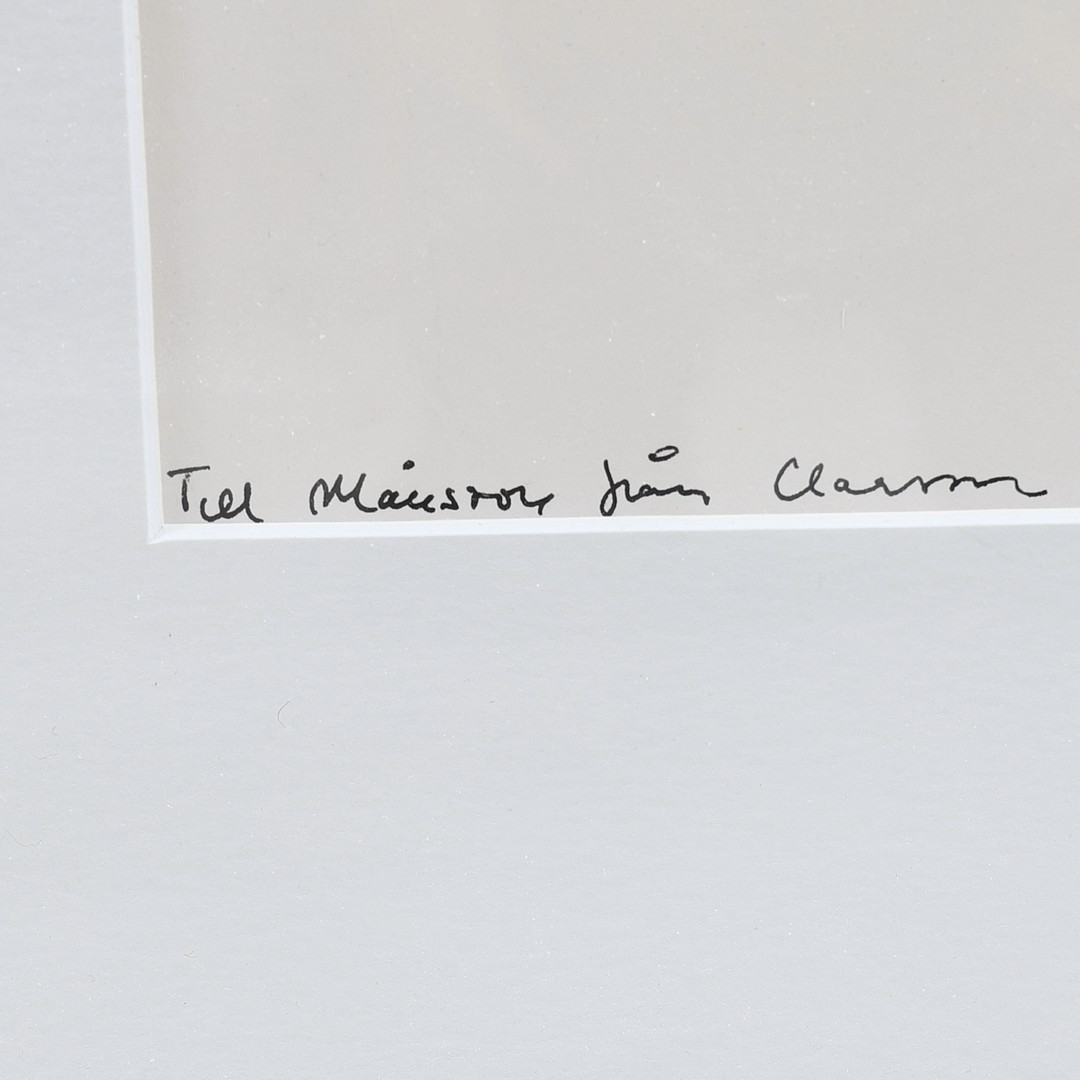 Till Månsson från Claesson